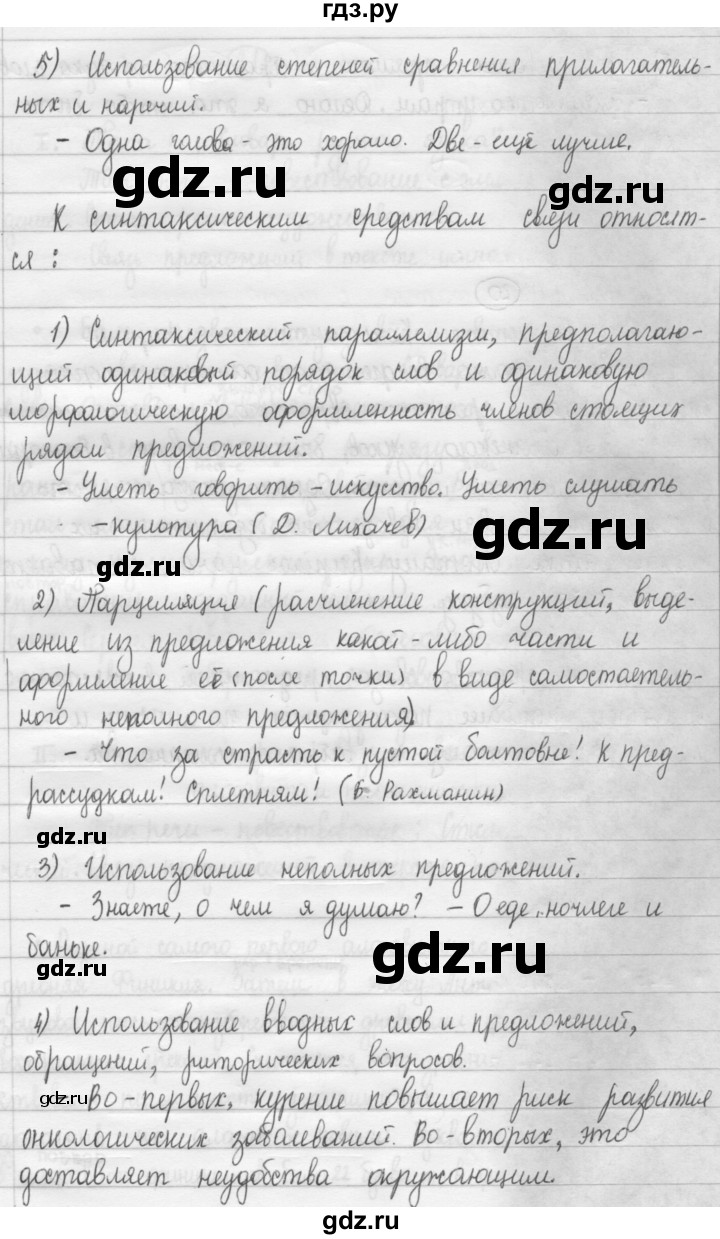 гдз.ру
5) Использование степеней сравнения прилагатель-
ных и наречий.
- Одна голова - это хорошо. Две - ещё лучше.
gdz.ru gdz.ru
К синтаксическим средствам связи относят-
ся:
1) Синтаксический параллелизм, предполагаю-
щий одинаковый порядок слов и одинаковую
морфологическую оформленность членов стоящих
рядом предложений.
- Уметь говорить - искусство. Уметь слушать
- культура (Д. Лихачев)
gdz.ru
gdz.ru
2) Парцелляция (расчленение конструкций, выде-
ление из предложения какой-либо части и
оформление её (после точки) в виде самостоятель-
ного неполного предложения)
- Что за страсть к пустой болтовне! К пред-
рассудкам! Сплетням! (Б. Рахманин)
gdz.ru
3) Использование неполных предложений.
- Знаете, о чем я думаю? - О еде, ночлеге и
баньке.
gdz.ru gdz.ru
4) Использование вводных слов и предложений,
обращений, риторических вопросов.
gdz.ru
Во-первых, курение повышает риск развития
онкологических заболеваний. Во-вторых, это
доставляет неудобства окружающим.
gdz.ru